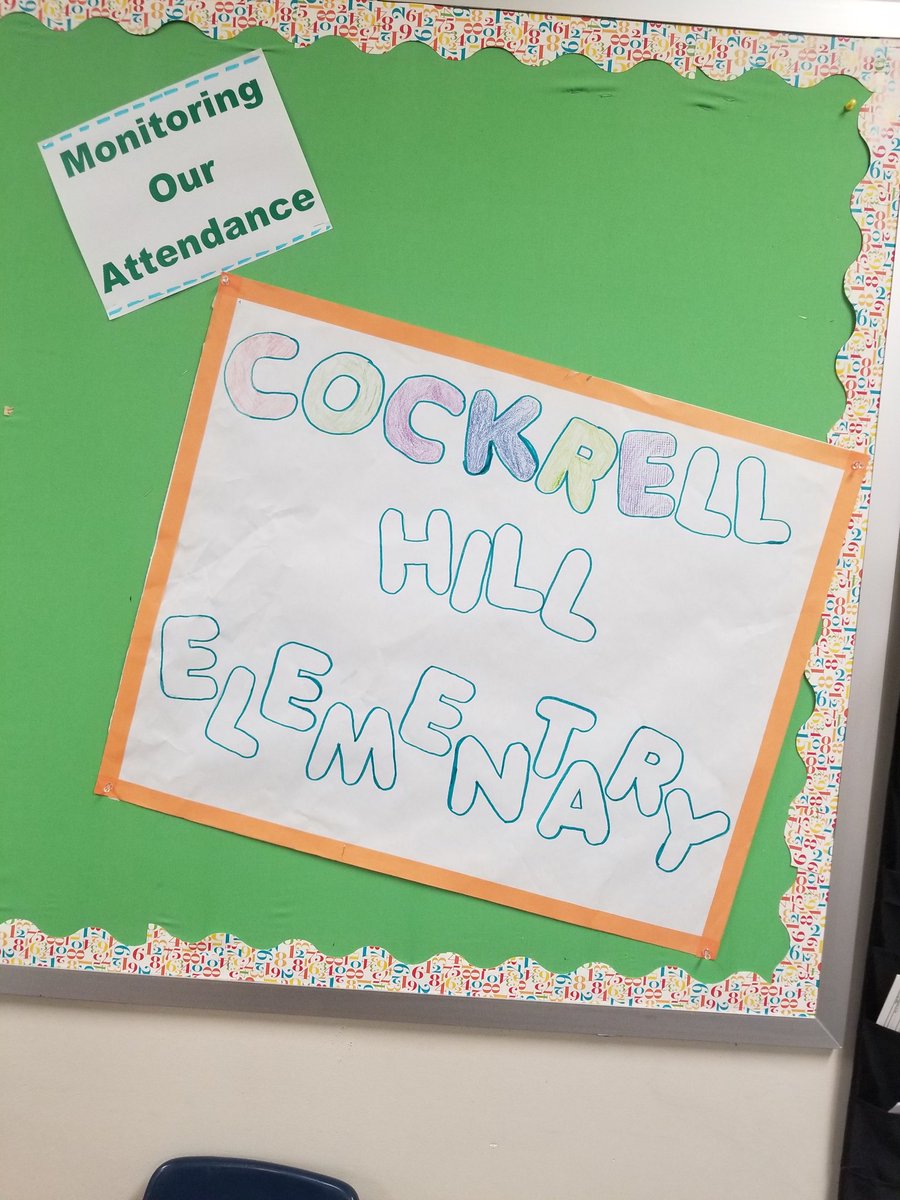 Monitoring
Our
Attendance
COCKRELL
HILL
ELEMENTARY